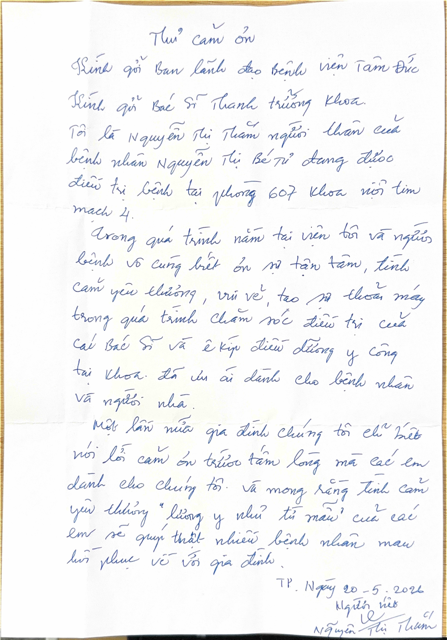 Thư cảm ơn
Kính gửi Ban lãnh đạo bệnh viện Tâm Đức
Kính gửi Bác Sĩ Thanh trưởng khoa
Tôi là Nguyễn Thị Thắm người thân của
bệnh nhân Nguyễn Thị Bé Tư đang được
điều trị bệnh tại phòng 607 khoa nội tim
mạch 4.
Trong quá trình nằm tại viện tôi và người
bệnh vô cùng biết ơn sự tận tâm, tình
cảm yêu thương, vui vẻ, tạo sự thoải máy
trong quá trình chăm sóc điều trị của
các Bác Sĩ và ê kíp điều dưỡng y công
tại khoa. đã ưu ái dành cho bệnh nhân
và người nhà.
Một lần nữa gia đình chúng tôi chỉ biết
nói lời cảm ơn trước tấm lòng mà các em
dành cho chúng tôi. và mong rằng tình cảm
yêu thương "lương y như từ mẫu" của các
em sẽ giúp thật nhiều bệnh nhân mau
hồi phục về với gia đình.
TP. Ngày 20-5-2026
Người viết
Nguyễn Thị Thắm